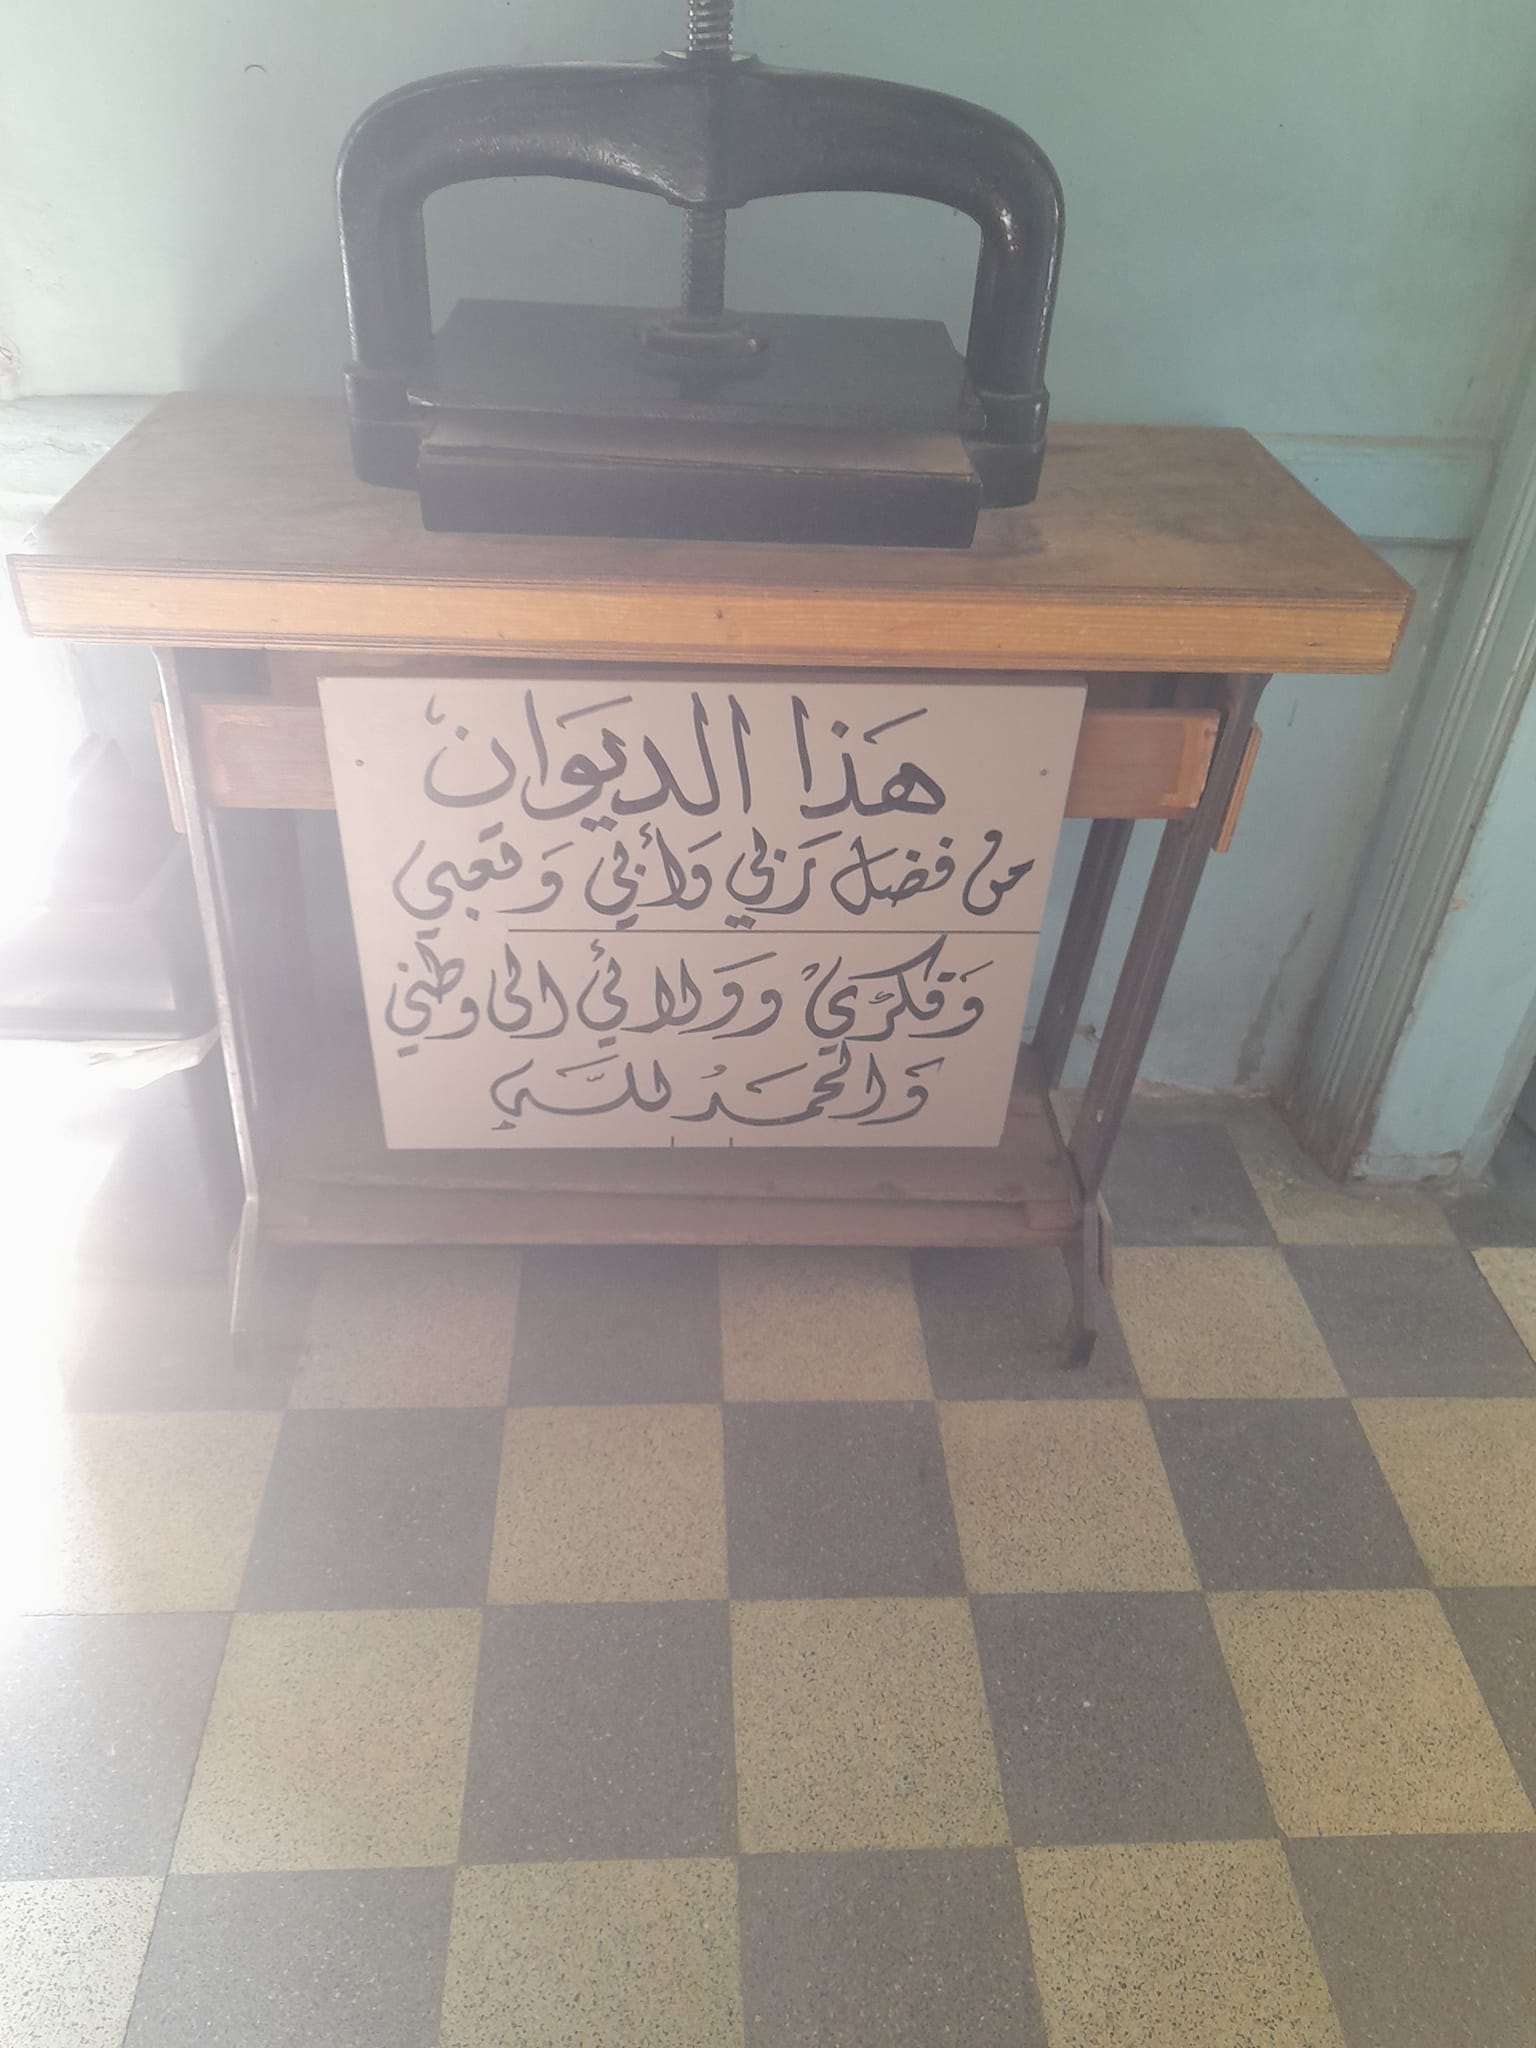 هَذا الديوَان
من فضل رَبي وَأبي وَ تعبي
وَفكرْيْ وَولائي الى وطني
وَالحمَدُ للَّه